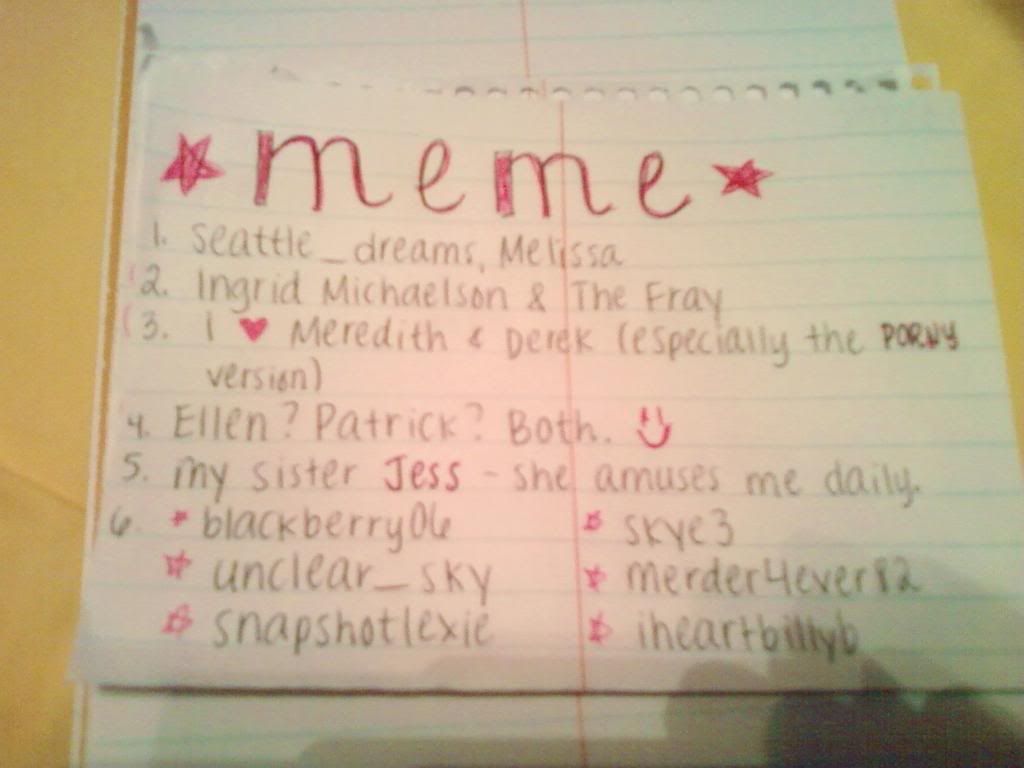 meme
1. seattle_dreams, Melissa
2. Ingrid Michaelson & The Fray
3. I ♥ Meredith & Derek (especially the PORNY
version)
4. Ellen? Patrick? Both.
5. my sister Jess - she amuses me daily.
6. * blackberry06 ☆ skye3
☆ unclear_sky ☆ merder4ever82
☆ snapshotlexie ☆ iheartbillyb